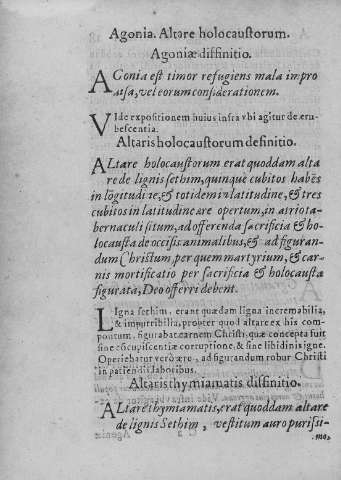 Agonia. Altare holocaustorum.
Agoniæ diffinitio.
AGonia est timor refugiens mala impro
aisa, vel eorum considerationem.
VIde expositionem huius infra vbi agitur de eru-
bescentia.
Altaris holocaustorum definitio.
ALtare holocaustorum erat quoddam alta
re de lignis sethim, quinque cubitos habẽs
in lõgitudine, & totidem in latitudine, & tres
cubitos in latitudine are opertum, in atrio ta-
bernaculi situm, ad offerenda sacrificia & ho-
locausta de occisis animalibus, & ad figuran-
dum Christum per quem martyrium, & car-
nis mortificatio per sacrificia & holocausta
figurata, Deo offerri debent.
LIgna sethim, erant quædam ligna incremabilia,
& imputribilia, propter quod altare ex his com-
ponitum, figurabat carnem Christi, quæ concepta fuit
sine cõcupiscentiæ corruptione, & sine libidinis igne.
Operiebatur vero ære, ad figurandum robur Christi
in patiendis laboribus.
Altaris thymiamatis diffinitio.
ALtare thymiamatis, erat quoddam altare
de lignis Sethim, vestitum auro purissi-
mo,
Agoniæ